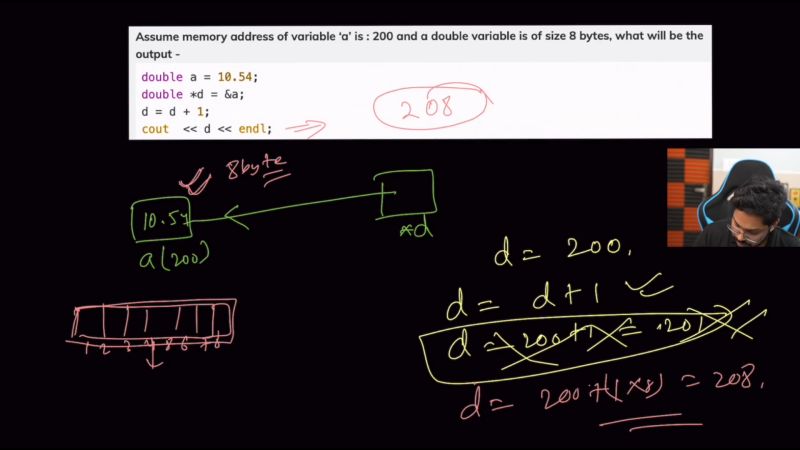 Assume memory address of variable ‘a’ is : 200 and a double variable is of size 8 bytes, what will be the
output -
double a = 10.54;
double *d = &a;
d = d + 1;
cout << d << endl;
208
8byte
10.54
*d
a(200)
d = 200.
d = d+1
d = 200+1 = 201
1 2 3 4 8 6 7 8
d = 200+(1x8) = 208.